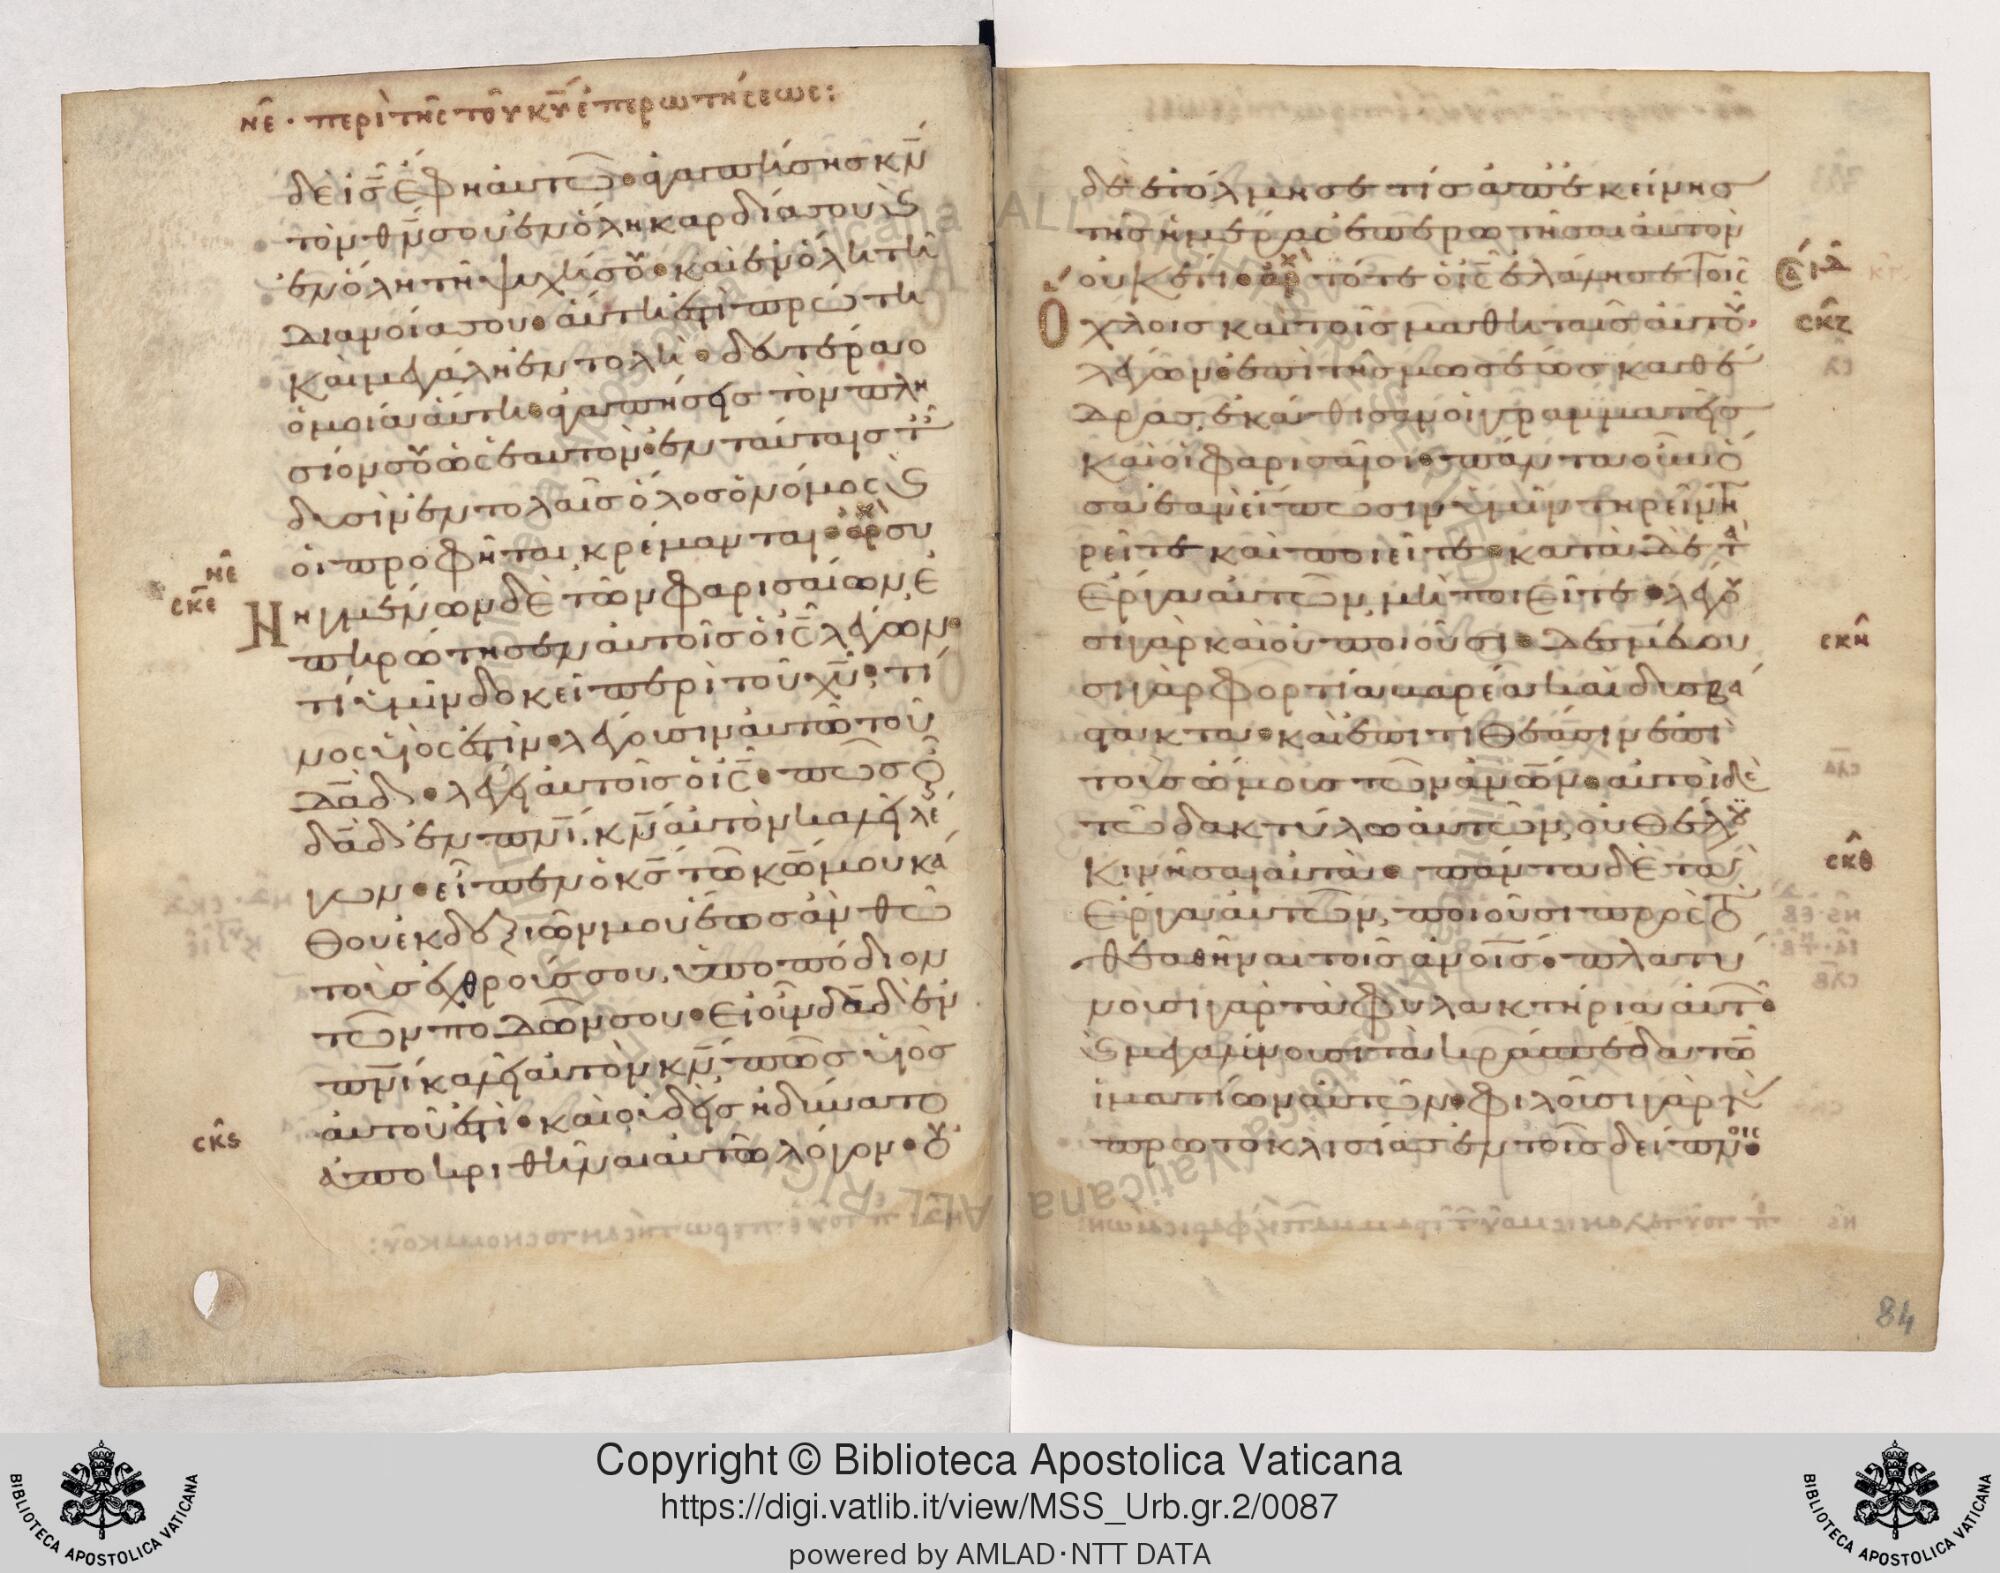 νε · περὶ τῆς τοῦ κ̅υ̅ ἐπερωτήσεως:
δὲ ι̅ς̅ ἔφη αὐτῶ· ἀγαπήσης κ̅ν̅
τὸν θ̅ν̅ σου ἐν ὅλη καρδία σου ϗ
ἐν ὅλη τῆ ψυχῆ σου· καὶ ἐν ὅλη τῆ
διανοία σου· αὕτη ἐστὶ πρώτη
καὶ μεγάλη ἐντολή· δευτέρα
ὁμοία αὐτῆ· ἀγαπήσεις τὸν πλη
σίον σου ὡς ἑαυτόν· ἐν ταύταις τ
δυσὶν ἐντολαῖς ὅλος ὁ νόμος ϗ
οἱ προφῆται κρέμανται· συ
νε
σκε
Η
ηγμένων δὲ τῶν φαρισαίων, ἐ
πηρώτησεν αὐτοῖς ὁ ι̅ς̅ λέγων·
τί ὑμῖν δοκεῖ περὶ τοῦ χ̅υ̅; τί
νος υἱός ἐστιν· λέγουσιν αὐτῶ τοῦ
δ̅α̅δ̅· λέγει αὐτοῖς ὁ ι̅ς̅· πῶς ὁ
δ̅α̅δ̅ ἐν π̅ν̅ι̅, κ̅ν̅ αὐτὸν καλεῖ λέ
γων· εἶπεν ὁ κ̅ς̅ τῶ κ̅ω̅ μου κά
θου ἐκ δεξιῶν μου ἕως ἂν θῶ
τοὺς ἐχθρούς σου, ὑποπόδιον
τῶν ποδῶν σου· εἰ οὖν δ̅α̅δ̅ ἐν
π̅ν̅ι̅ καλεῖ αὐτὸν κ̅ν̅, πῶς υἱὸς
αὐτοῦ ἐστι· καὶ οὐδεὶς ἠδύνατο
σκς
ἀποκριθῆναι αὐτῶ λόγον· οὐ
δὲ ἐτόλμησε τίς ἀπ᾽ ἐκείνης
τῆς ἡμέρας ἐπερωτῆσαι αὐτὸν
οὐκέτι· τότε ὁ ι̅ς̅ ἐλάλησε τοῖς
Ὁ
χλοις καὶ τοῖς μαθηταῖς αὐτοῦ,
σκζ
λέγων· ἐπὶ τῆς μωσέως καθέ
δρας, ἐκάθισαν οἱ γραμματεῖς
καὶ οἱ φαρισαῖοι· πάντα οὖν ὅ
σα ἐὰν εἴπωσιν ὑμῖν τηρεῖν τη
ρεῖτε καὶ ποιεῖτε· κατὰ δὲ τὰ
ἔργα αὐτῶν, μὴ ποιεῖτε· λέγου
σι γὰρ καὶ οὐ ποιοῦσι· δεσμεύου
σκη
σι γὰρ φορτία βαρέα καὶ δυσβά
στακτα· καὶ ἐπιτιθέασιν ἐπὶ
τοὺς ὤμους τῶν ἀ̅ν̅ω̅ν̅· αὐτοὶ δὲ
τῶ δακτύλω αὐτῶν, οὐ θέλου
κινῆσαι αὐτά· πάντα δὲ τὰ
σκθ
ἔργα αὐτῶν, ποιοῦσι πρὸς τὸ
θεαθῆναι τοῖς ἀ̅ν̅ο̅ι̅ς̅· πλατύ
νουσι γὰρ τὰ φυλακτήρια αὐτ·
ϗ μεγαλύνουσι τὰ κράσπεδα τῶ
ἱματίων αὐτῶν· φιλοῦσι γὰρ τ
πρωτοκλισίας ἐν τοῖς δείπνοις·
84
Copyright © Biblioteca Apostolica Vaticana
https://digi.vatlib.it/view/MSS_Urb.gr.2/0087
powered by AMLAD·NTT DATA
BIBLIOTECA APOSTOLICA VATICANA
BIBLIOTECA APOSTOLICA VATICANA